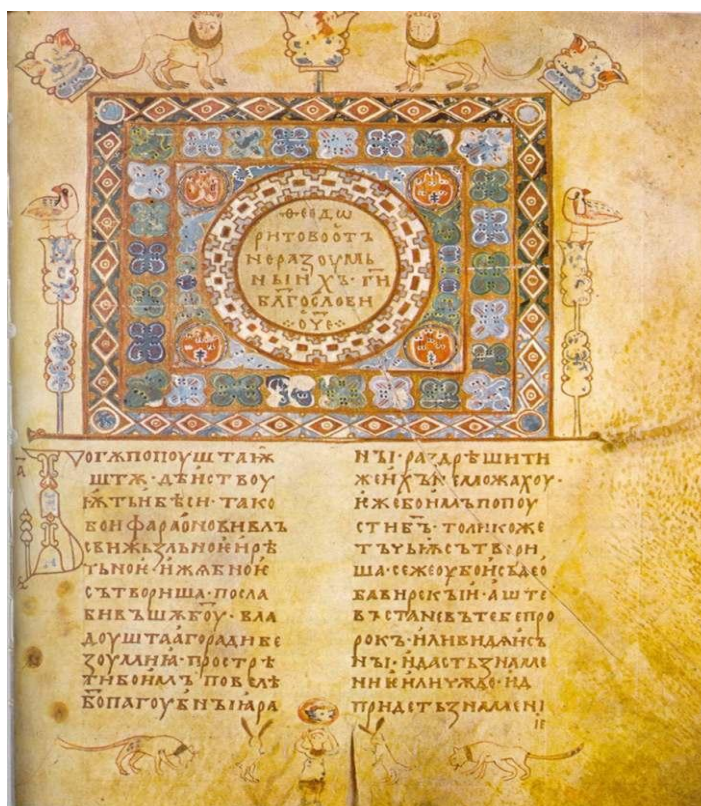 ·ѲЕОДѠ
РИТОВО ОТЪ
НЕРАЗОУМЬ
НЫИХЪ· Г҃И
БЛАГОСЛОВИ
ОЧЕ
а҃
БОГѪПОПОУШТАѬ
ШТѪ· ДѢИСТВОУ
ѬТЬИБѢСИ· ТАКО
БОИФАРАОНОВИВЛЪ
СВИЖЬЗЛЬНОѤИРѢ
ТЬНОѤ· ИЖАБНОѤ
СЪТВОРИША· ПОСЛА
БИВЪШѪБ҃ОУ· ВЛА
ДОУШТААГОРАДИБЕ
ЗОУМИꙖ· ПРОСТРѢ
ТИБОИМЪ ПОВЕЛѢ
Б҃ОПАГОУБНЫИꙖРА
НЫ· РАЗДРѢШИТИ
ЖЕИХЪНЕМОЖАХОУ·
ѤЖЕБОИМЪПОПОУ
СТИБ҃Ъ· ТОЛИКОЖЕ
ТЪЧЬѬСЪТВОРИ
ША· СЕЖЕОУБОИСЪДЕО
БАВИРЕКЫИ· АШТЕ
ВЪСТАНЕВЪТЕБЕПРО
РОКЪ· ИЛИВИДѦИСЪ
НЫ· ИДАСТЬЗНАМЕ
НИѤИЛИЧЮДО· ИД
ПРИДЕТЬЗНАМЕНІ
ІЕ